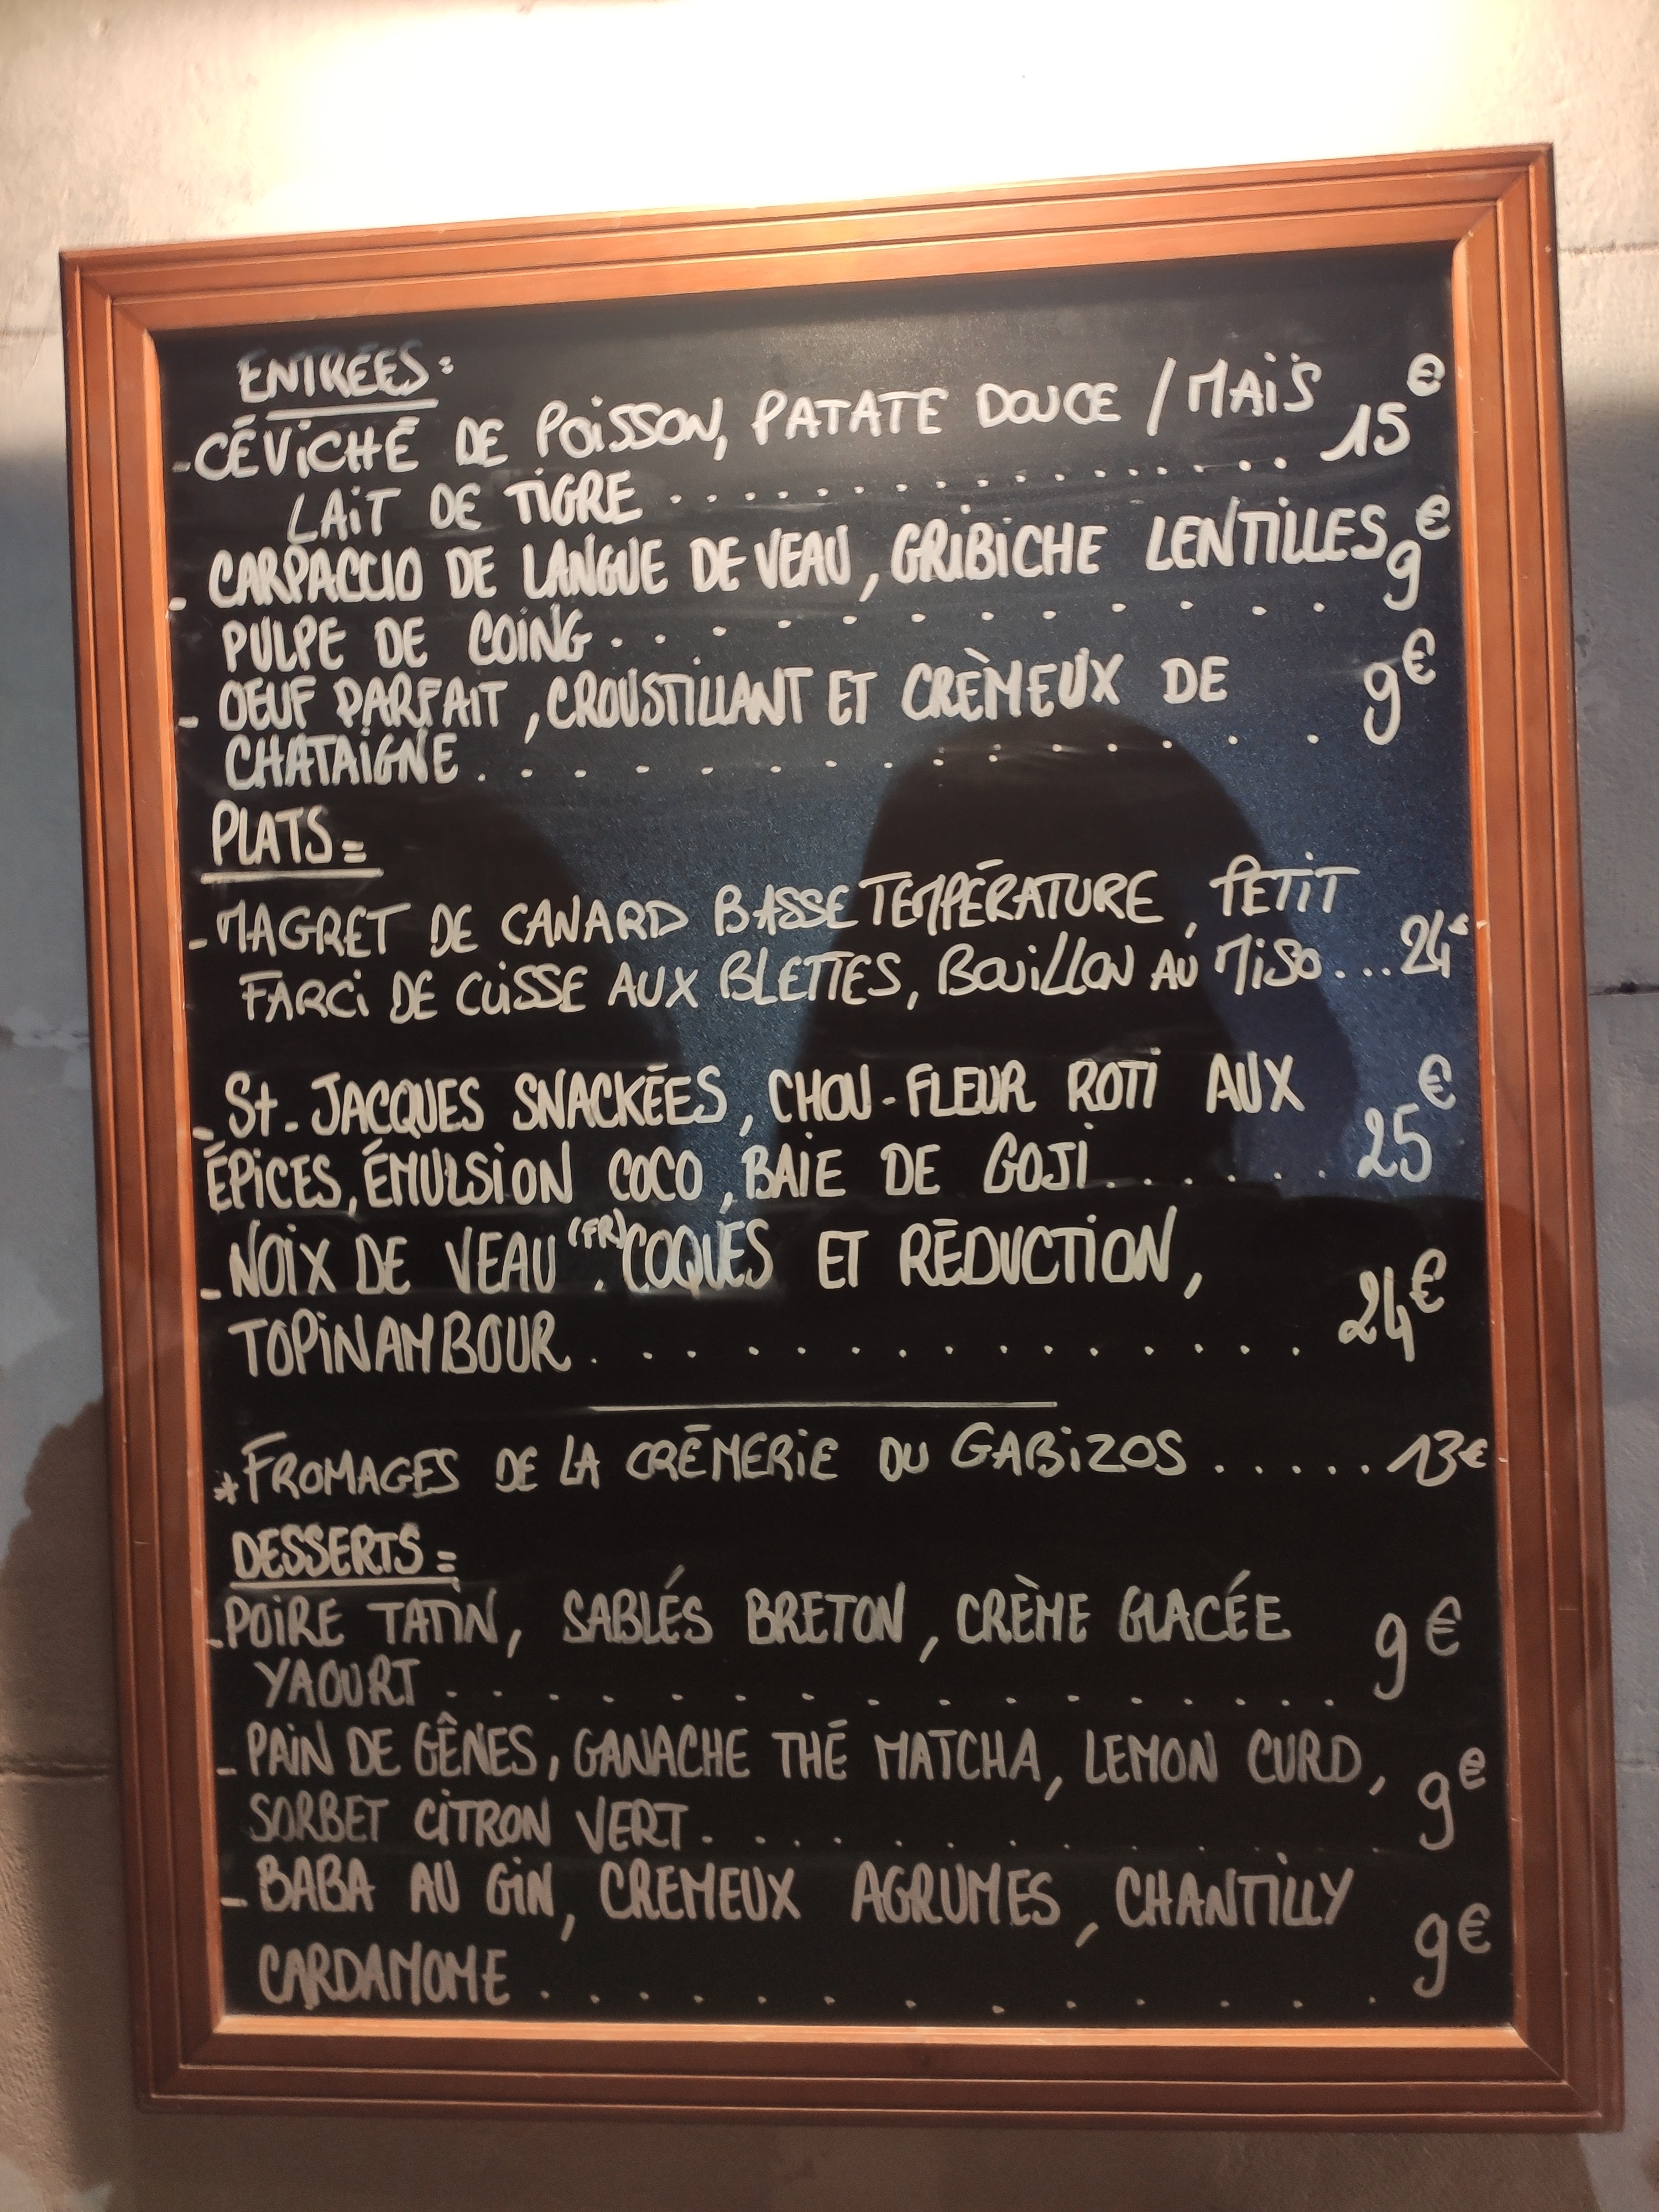 ENTRÉES:
-CÉVICHÉ DE POISSON, PATATE DOUCE / MAÏS
LAIT DE TIGRE .................. 15€
- CARPACCIO DE LANGUE DE VEAU, GRIBICHE LENTILLES
PULPE DE COING............ 9€
- OEUF PARFAIT, CROUSTILLANT ET CRÈMEUX DE
CHATAIGNE............. 9€
PLATS=
-MAGRET DE CANARD BASSE TEMPÉRATURE, PETIT
FARCI DE CUISSE AUX BLETTES, BOUILLON AU MISO...24€
- St. JACQUES SNACKÉES, CHOU-FLEUR ROTI AUX
ÉPICES, ÉMULSION COCO, BAIE DE GOJI....... 25€
- NOIX DE VEAU (FR), COQUES ET RÉDUCTION,
TOPINAMBOUR............ 24€
*FROMAGES DE LA CRÉMERIE DU GABIZOS ......13€
DESSERTS=
-POIRE TATIN, SABLÉS BRETON, CRÈME GLACÉE
YAOURT.............. 9€
- PAIN DE GÊNES, GANACHE THÉ MATCHA, LEMON CURD,
SORBET CITRON VERT........... 9€
- BABA AU GIN, CREMEUX AGRUMES, CHANTILLY
CARDAMOME............ 9€